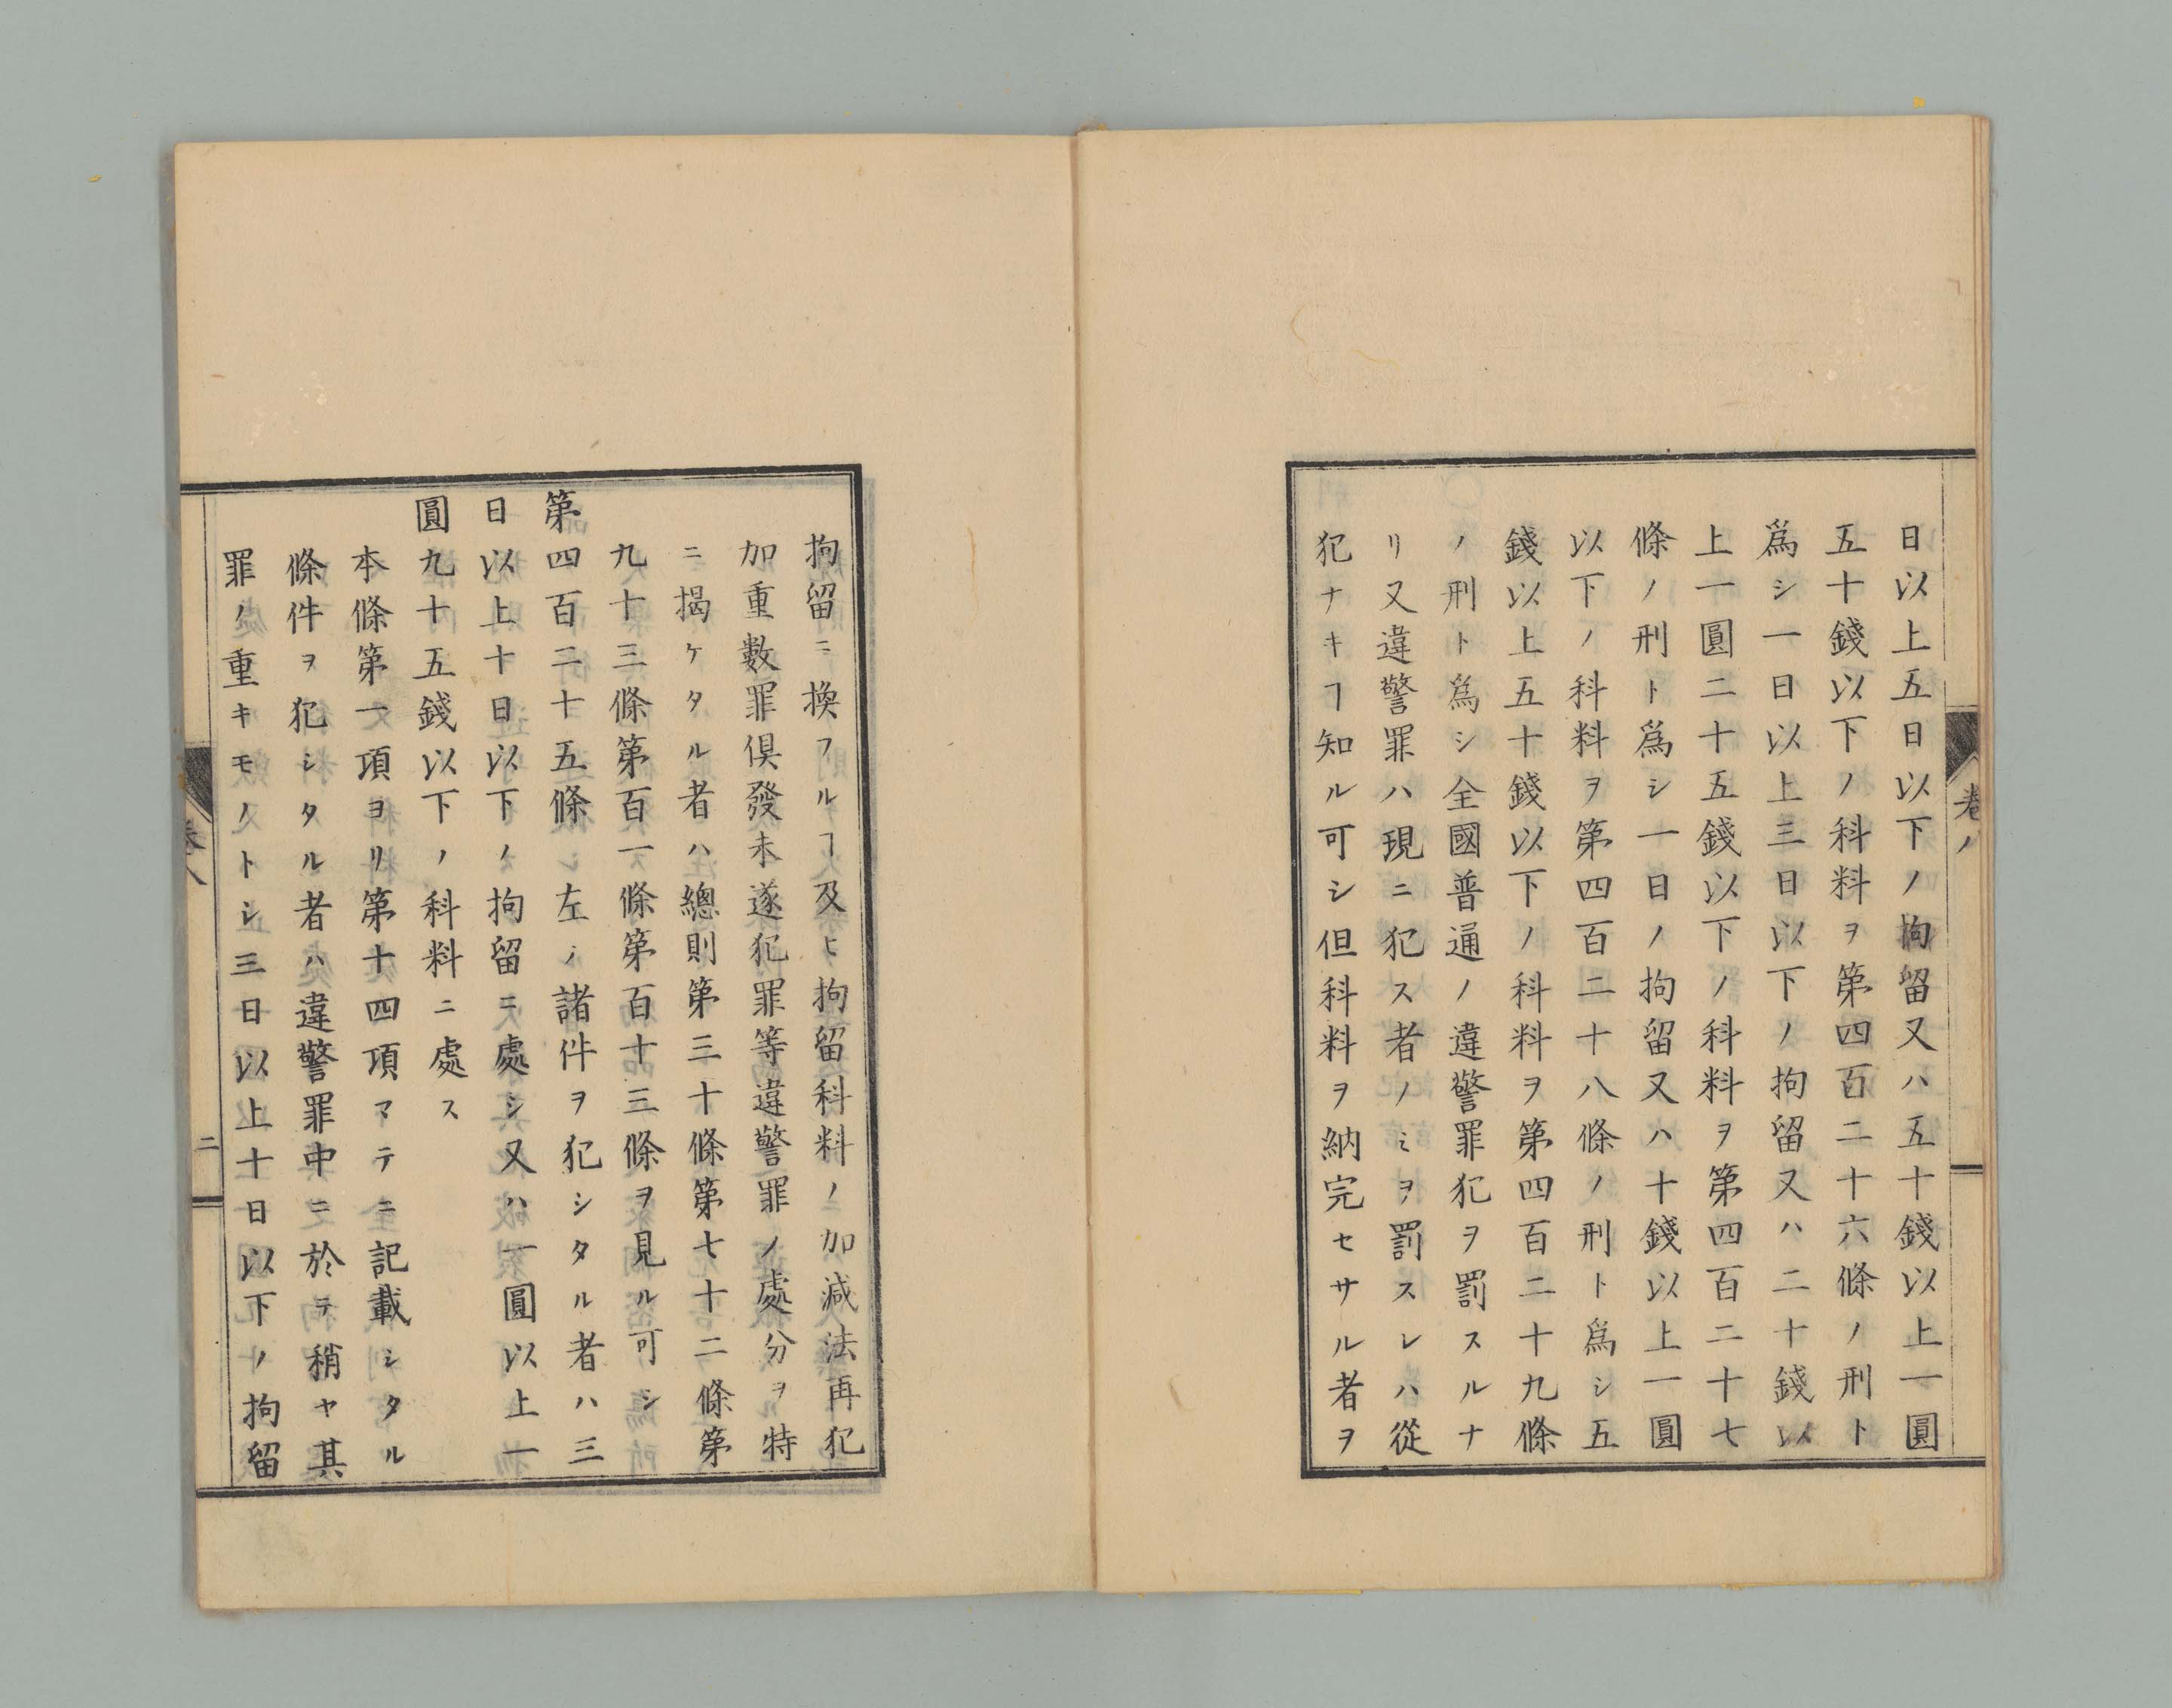 日以上五日以下ノ拘留又ハ五十錢以上一圓
五十錢以下ノ科料ヲ第四百二十六條ノ刑ト
爲シ一日以上三日以下ノ拘留又ハ二十錢以
上一圓二十五錢以下ノ科料ヲ第四百二十七
條ノ刑ト爲シ一日ノ拘留又ハ十錢以上一圓
以下ノ科料ヲ第四百二十八條ノ刑ト爲シ五
錢以上五十錢以下ノ科料ヲ第四百二十九條
ノ刑ト爲シ全國普通ノ違警罪犯ヲ罰スルナ
リ又違警罪ハ現ニ犯ス者ノミヲ罰スレハ從
犯ナキヿ知ル可シ但科料ヲ納完セサル者ヲ
拘留ニ換フルヿ及ヒ拘留科料ノ加減法再犯
加重數罪俱發未遂犯罪等違警罪ノ處分ヲ特
ニ揭ケタル者ハ總則第三十條第七十二條第
九十三條第百一條第百十三條ヲ見ル可シ
第四百二十五條 左ノ諸件ヲ犯シタル者ハ三
日以上十日以下ノ拘留ニ處シ又ハ一圓以上一
圓九十五錢以下ノ科料ニ處ス
本條第一項ヨリ第十四項マテニ記載シタル
條件ヲ犯シタル者ハ違警罪中ニ於テ稍ヤ其
罪ノ重キモノトシ三日以上十日以下ノ拘留
卷八
二